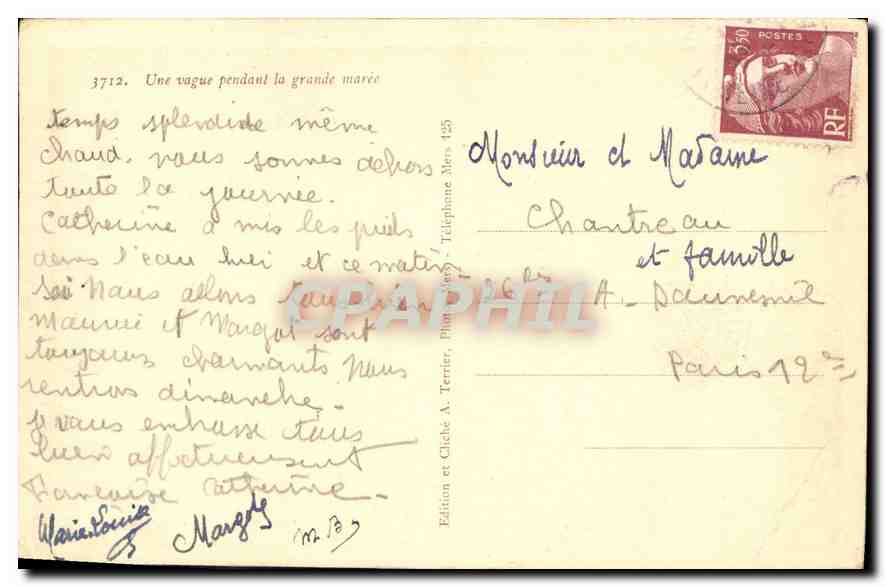 3712. Une vague pendant la grande marée
temps splendide même
chaud. nous sommes dehors
toute la journée.
Catherine a mis les pieds
dans l'eau hier et ce matin
Nous allons tous bien
Maurice et Margot sont
toujours charmants. Nous
rentrons dimanche.
je vous embrasse tous
bien affectueusement
Françoise Catherine
Marie-Louise
Margot
M. B.
Edition et Cliché A. Terrier, Photo, Mers - Téléphone Mers 125
3f50
POSTES
RF
Monsieur et Madame
Chantreau
et famille
26 bis A. Daumesnil
Paris 12e
CPAPHIL